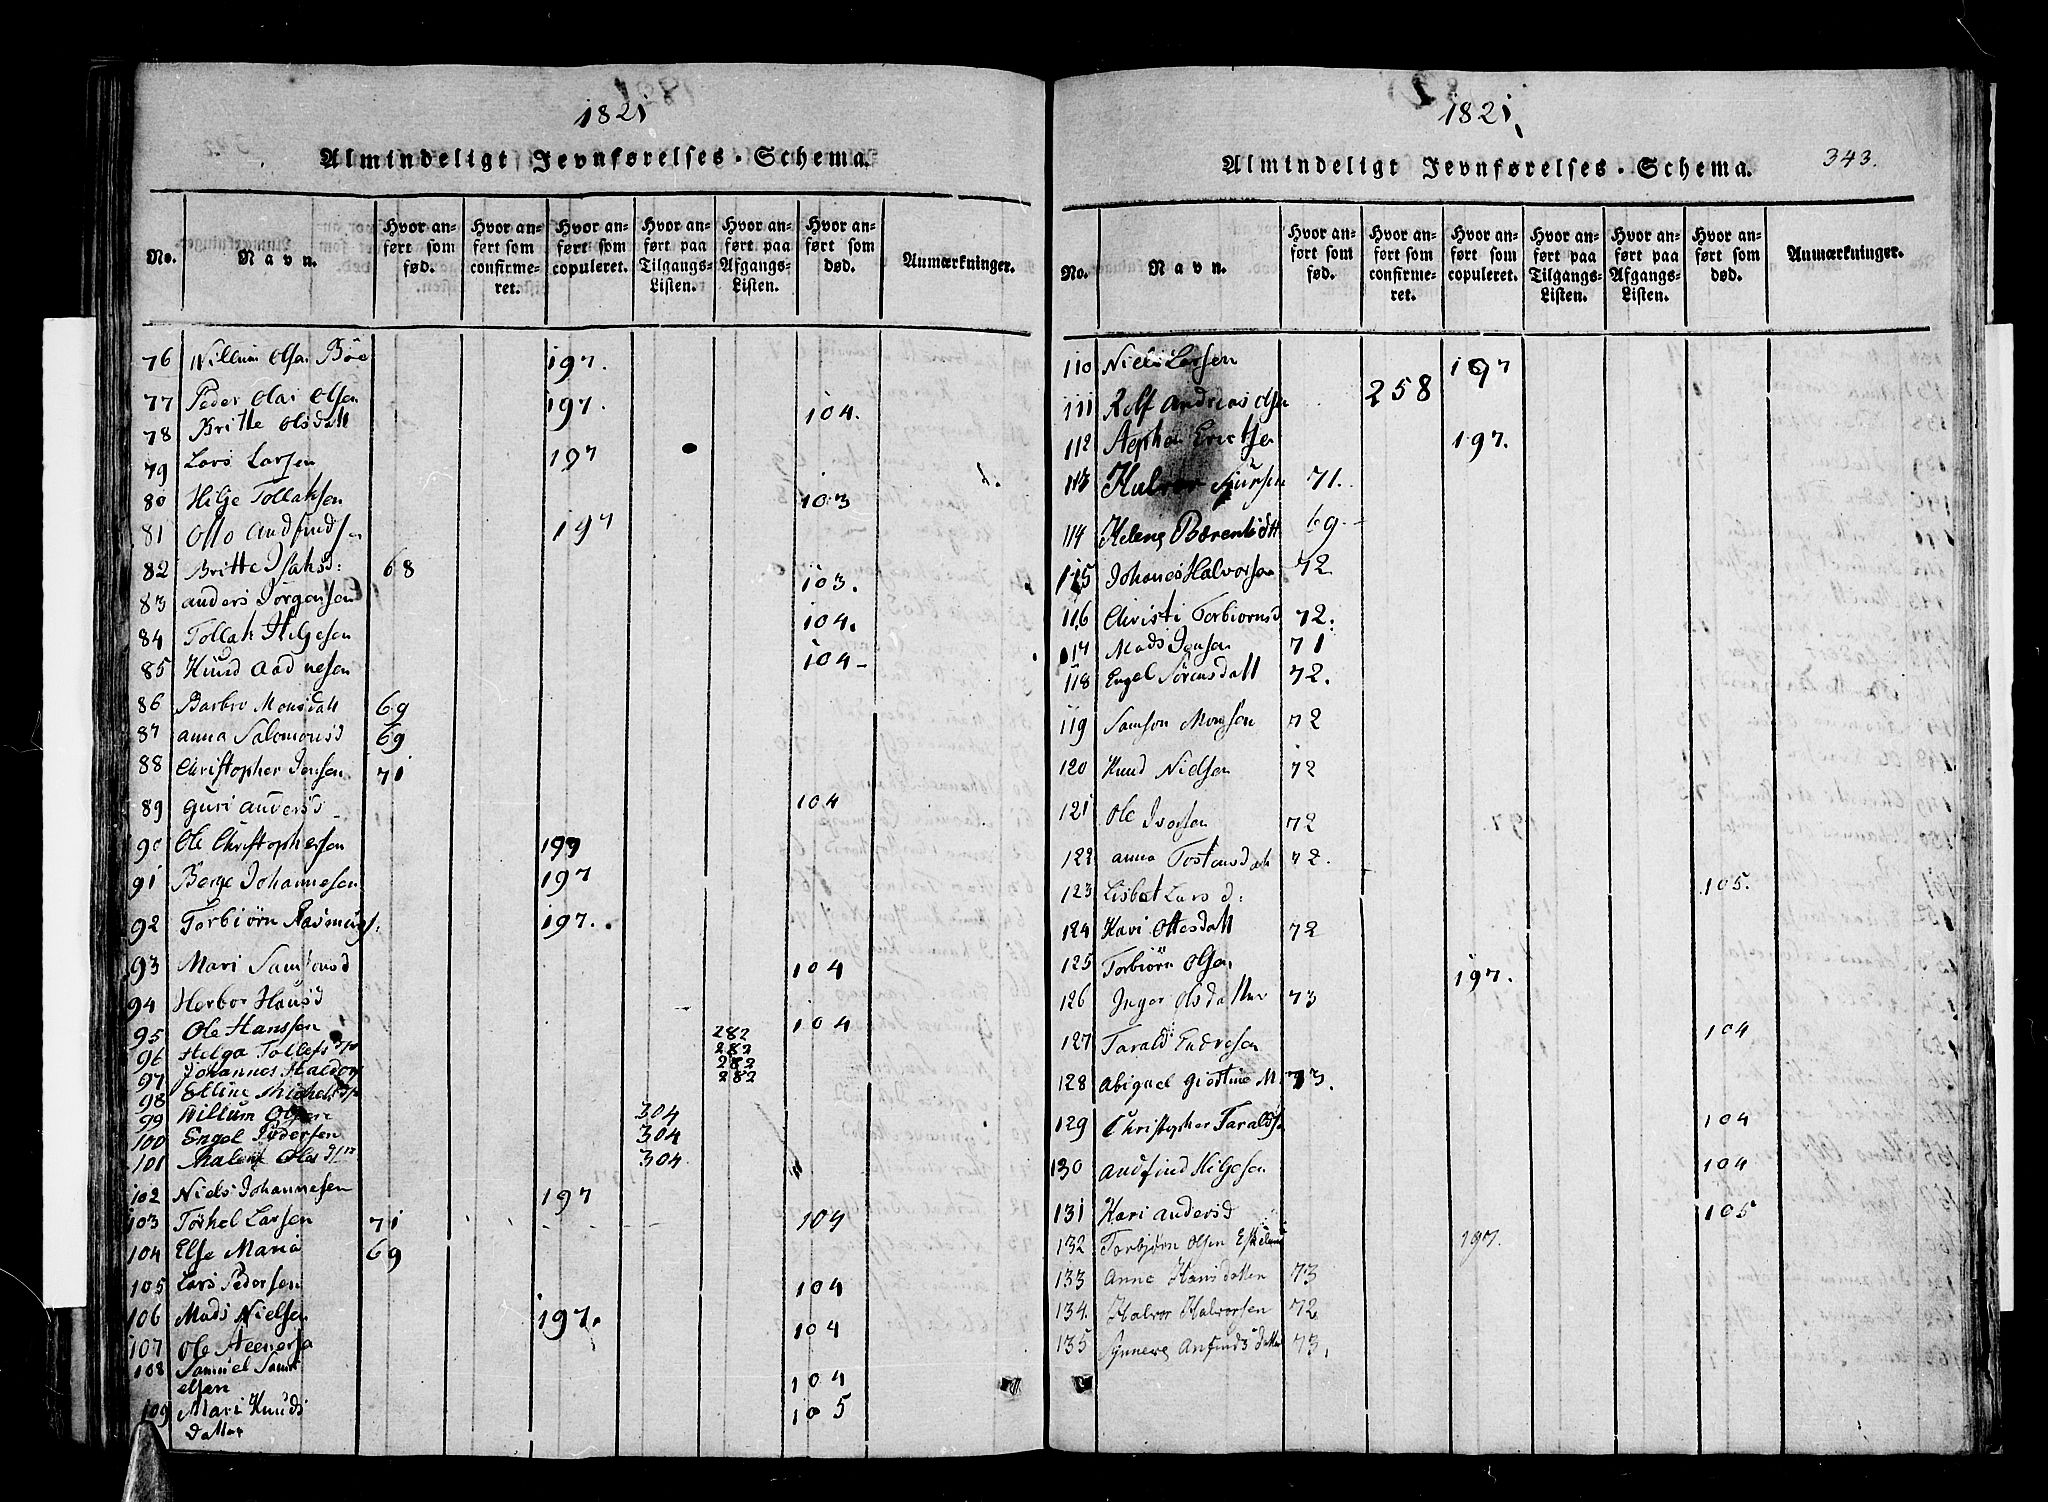 1821
Almindeligt Jevnførelses-Schema.
No. Navn. Hvor anført som fød. Hvor anført som confirmeret. Hvor anført som copuleret. Hvor anført paa Tilgangs-Listen. Hvor anført paa Afgangs-Listen. Hvor anført som død. Anmærkninger.
76 Willum Olsen Böe 197.
77 Peder Olai Olsen 197.
78 Britte Olsdatt 104.
79 Lars Larsen 197
80 Helje Tollaksen 103
81 Otto Andfinds 197
82 Britte Isaksd: 68
83 Anders Jörgensen 103.
84 Tollak Helgesen 104.
85 Knud Aadnesen 104-
86 Barbro Monsdatt 69
87 Anna Salomonsd 69
88 Christopher Jensen 71
89 Guri Andersd 104
90 Ole Christophersen 199
91 Berge Johannesen 197
92 Torbiörn Rasmuss: 197.
93 Mari Samsonsd 104
94 Herbor Hansd
95 Ole Hanssen 104 282
96 Helga Tollefs 282
97 Johannes Haldors 282
98 Elline Michels 282
99 Willum Olsen 304
100 Engel Pedersen 304
101 Malene Ols 304
102 Niels Johannesen 197
103 Törkel Larsen 71 104
104 Else Maria 69
105 Lars Pedersen 104
106 Mads Nielsen 197.
107 Ole Steenersen 104
108 Samuel Samu
elsen 104
109 Mari Knuds 105
datter
1821
343.
Almindeligt Jevnførelses-Schema.
No. Navn. Hvor anført som fød. Hvor anført som confirmeret. Hvor anført som copuleret. Hvor anført paa Tilgangs-Listen. Hvor anført paa Afgangs-Listen. Hvor anført som død. Anmærkninger.
110 Niels Larsen 197
111 Rolf Andreas Olsen 258
112 Erichsen 197.
113 Halvor Siursen 71.
114 Helene 69
115 Johanes Halvorsen 72
116 Christi Torbiornsd 72.
117 Mads Jensen 71
118 Engel Sörensdatt 72.
119 Samson Monsen 72
120 Knud Nielsen 72
121 Ole Iversen 72
122 Anna Tostensdatt 72.
123 Lisbet Larsd: 105.
124 Kari Ottesdatt 72
125 Torbiörn Olsen 197.
126 Inger Olsdatter 73
127 Tarald Endresen 104
128 Abigael Giertine M. 73.
129 Christopher Taralds 104
130 Andfind Helgesen 104
131 Kari Andersd 105
132 Torbjørn Olsen 197.
133 Anne Hansdatter 73
134. Halvor Halvorsen 72
135 Synneve Anfindsdatter 73.